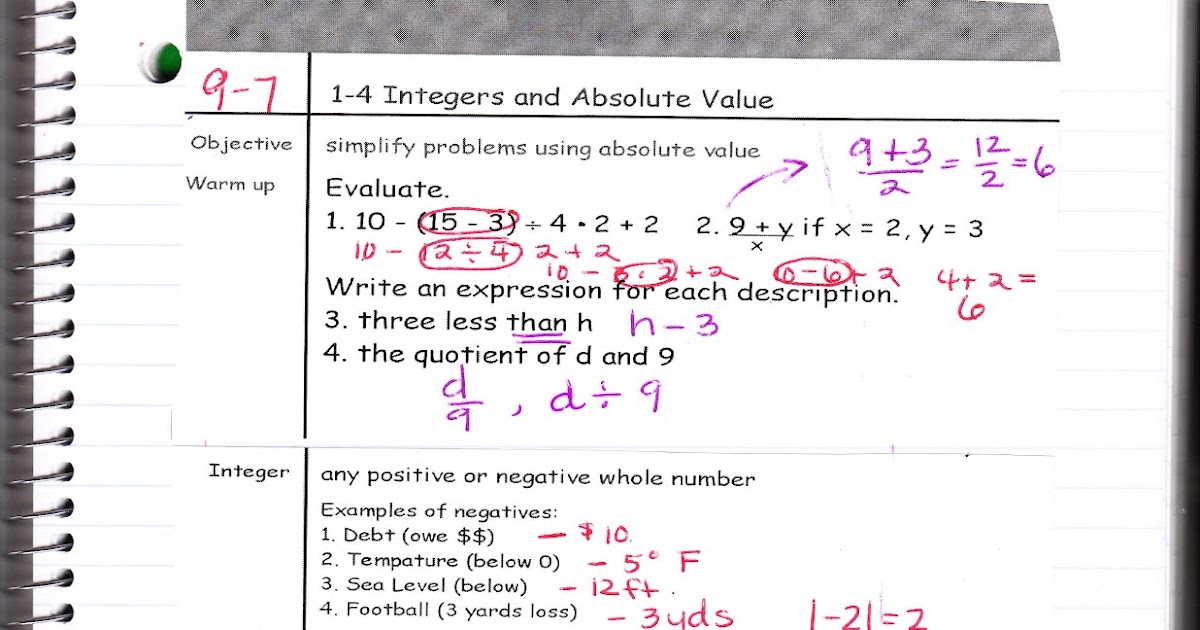 9-7 1-4 Integers and Absolute Value
Objective simplify problems using absolute value
9+3/2 = 12/2 = 6
Warm up Evaluate.
1. 10 - (15 - 3) ÷ 4 • 2 + 2 2. 9 + y if x = 2, y = 3
x
10 - 12 ÷ 4 2 + 2
10 - 3 · 2 + 2 10 - 6 + 2 4 + 2 =
6
Write an expression for each description.
3. three less than h h - 3
4. the quotient of d and 9
d/9 , d ÷ 9
Integer any positive or negative whole number
Examples of negatives:
1. Debt (owe $$) - $10.
2. Tempature (below 0) - 5° F
3. Sea Level (below) - 12ft.
4. Football (3 yards loss) - 3yds |-2|=2